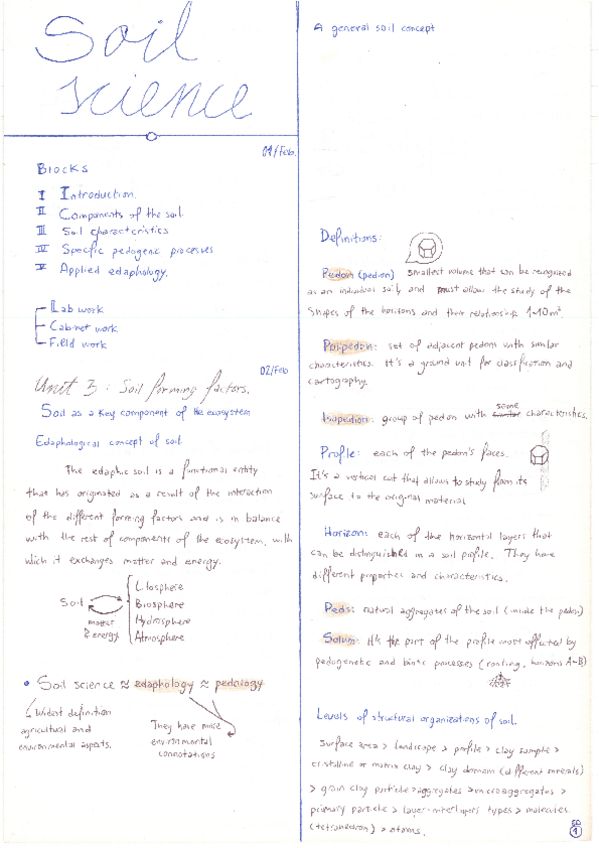 Soil
science
01/Feb.
Blocks
I Introduction.
II Components of the soil
III Soil characteristics
IV Specific pedogenic processes
V Applied edaphology.
Lab work
Cabinet work
Field work
02/Feb
Unit 3: Soil forming factors.
Soil as a key component of the ecosystem
Edaphological concept of soil
The edaphic soil is a functional entity
that has originated as a result of the interaction
of the different forming factors and is in balance
with the rest of components of the ecosystem, with
which it exchanges matter and energy.
Soil
matter
& energy
Litosphere
Biosphere
Hydrosphere
Atmosphere
• Soil science ≈ edaphology ≈ pedology
Widest definition
agricultural and
environmental aspects.
They have more
environmental
connotations
A general soil concept
Definitions:
Pedon (pedion) smallest volume that can be recognized
as an individual soil, and must allow the study of the
shapes of the horizons and their relationship. 1-10 m².
Polipedon: set of adjacent pedons with similar
characteristics. It's a ground unit for classification and
cartography.
Isopedion: group of pedon with same characteristics.
Profile: each of the pedon's faces.
It's a vertical cut that allows to study from its
surface to the original material
Horizon: each of the horizontal layers that
can be distinguished in a soil profile. They have
different properties and characteristics.
Peds: natural aggregates of the soil (inside the pedon)
Solum: It's the part of the profile most affected by
pedogenetic and biotic processes (rooting, horizons A-B)
Levels of structural organizations of soil
Surface area > landscape > profile > clay sample >
cristalline or matrix clay > clay domain (different minerals)
> grain clay particle > aggregates > microaggregates >
primary particle > layer-interlayers types > molecules
(tetrahedron) > atoms.
1